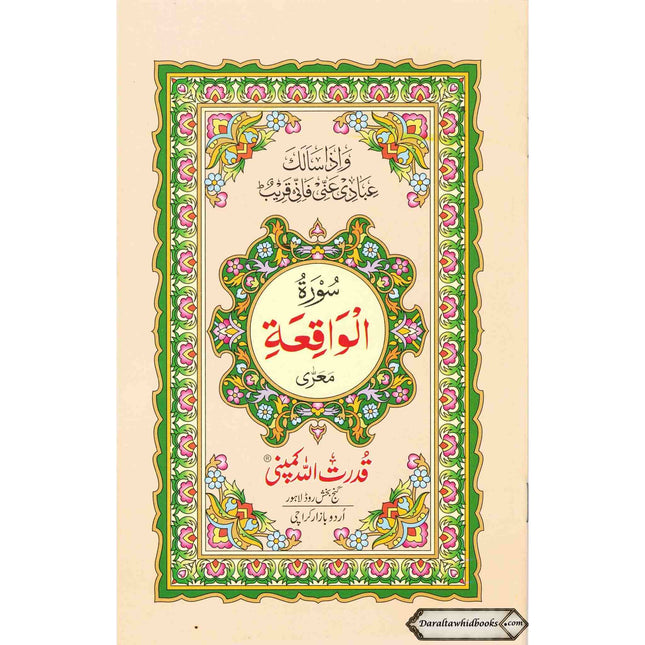 وَاِذَا سَاَلَكَ
عِبَادِیْ عَنِّیْ فَاِنِّیْ قَرِیْبٌ ؕ
سُوْرَةُ
الْوَاقِعَةِ
مَعَرّٰی
قُدرت اللہ کمپنی ®
گنج بخش روڈ لاہور
اُردو بازار کراچی
Daraltawhidbooks.com